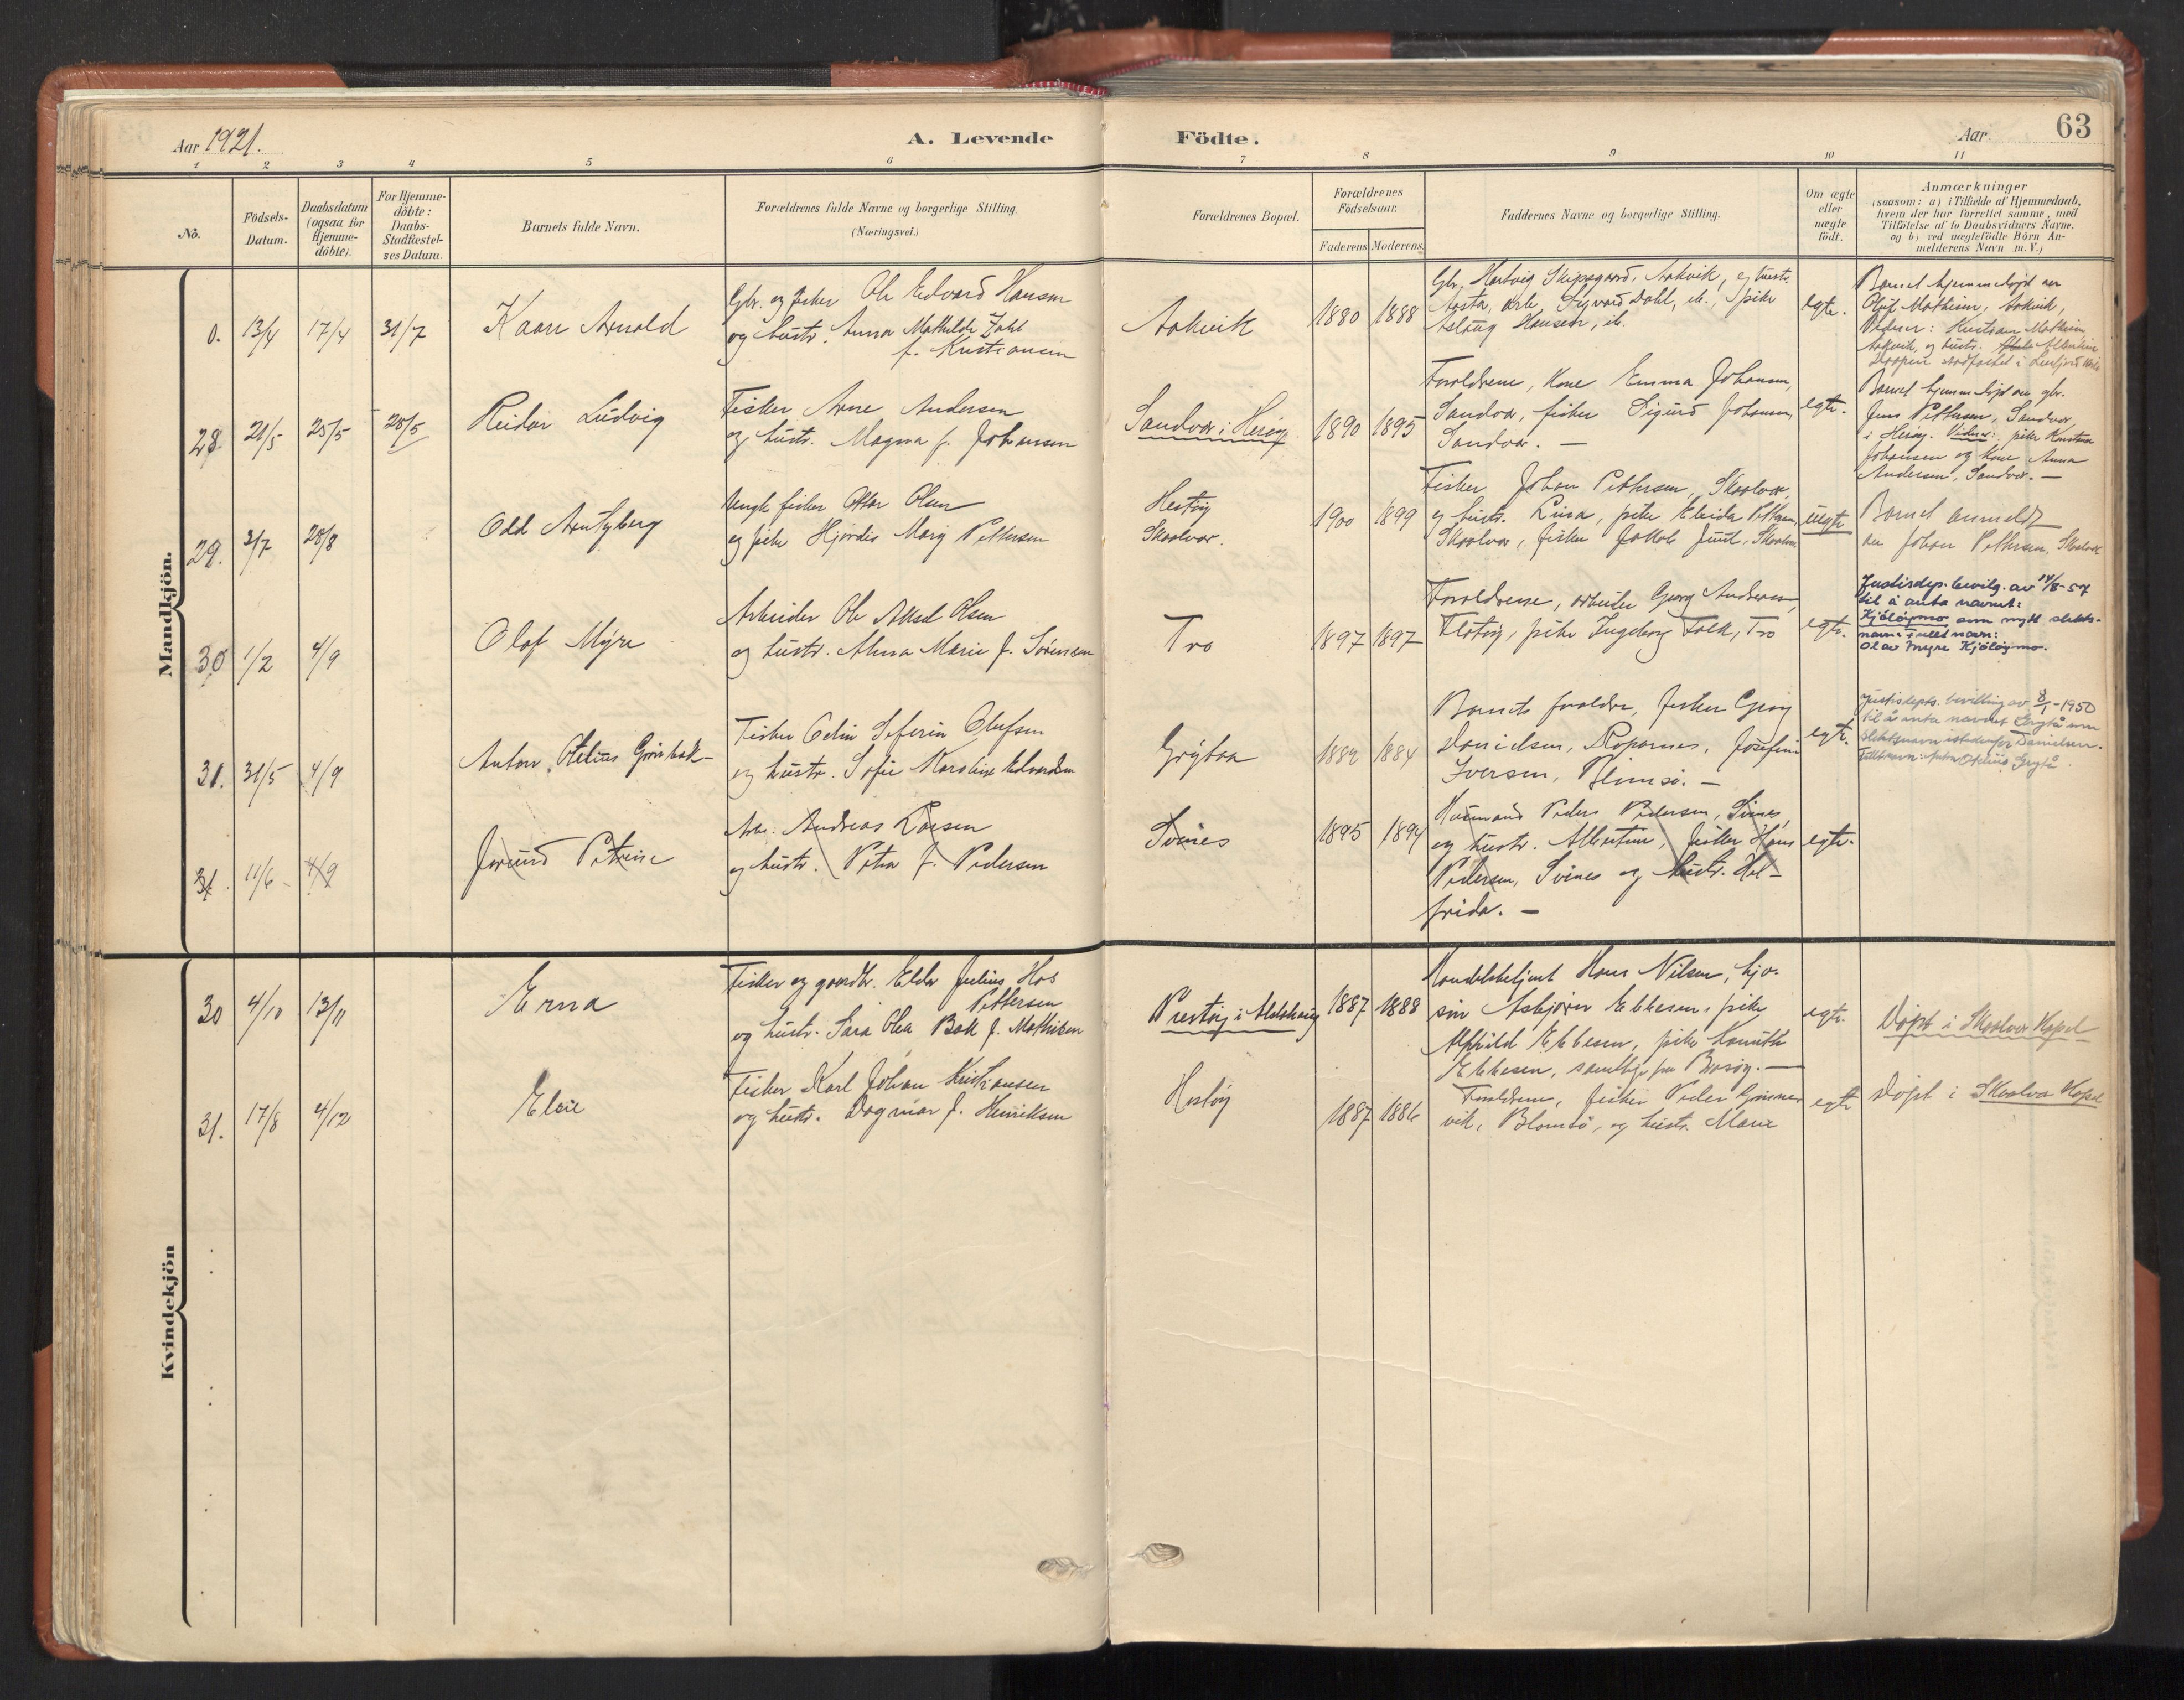 Aar 1921.
A. Levende
Födte.
Aar.
63
1 2 3 4 5 6 7 8 9 10 11
No.
Födsels-
Datum.
Daabsdatum
(ogsaa for
Hjemme-
döbte).
For Hjemme-
döbte:
Daabs-
Stadfæstel-
ses Datum.
Barnets fulde Navn.
Forældrenes fulde Navne og borgerlige Stilling
(Næringsvei.)
Forældrenes Bopæl.
Forældrenes
Födselsaar.
Faderens Moderens
Faddernes Navne og borgerlige Stilling.
Om ægte
eller
uægte
födt.
Anmærkninger
(saasom: a) i Tilfælde af Hjemmedaab,
hvem der har forrettet samme, med
Tilföielse af to Daabsvidners Navne.
og b) ved uægtefödte Börn An-
melderens Navn m. V.)
Mandkjön.
0. 13/4 17/4 31/7
Kaare Arnold
Gbr. og fisker Ole Edvard Hansen
og hustr. Anna Mathilde Dahl
f. Kristiansen
Aakvik
1880 1888
Gbr. Hartvig Skipsgaard, Aakvik, og hustr.
Sigvard Dahl, ib., pike
Aslaug Hansen, ib.
egte.
Barnet hjemmedøpt av
Oluf Mathisen, Aakvik,
Vidner: Kristian Mathisen
Aakvik, og hustr. Albertine
28. 21/5 25/5 28/5
Reidar Ludvig
Fisker Arne Andersen
og hustr. Magna f. Johansen
Sandvær i Herøy
1890 1895
Forældrene, kone Emma Johansen,
Sandvær, fisker Sigurd Johansen,
Sandvær. —
egte.
Barnet hjemmedøpt av gbr.
Jens Pettersen, Sandvær
i Herøy. Vidner: pike Kristine
Johansen og kone Anna
Andersen, Sandvær. —
29. 2/7 28/8
Odd Arn Syberg
Ungk. fisker Ottar Olsen
og pike Hjørdis Marg Pettersen
Hestøy
Skaalvær.
1900 1899
Fisker Johan Pettersen, Skaalvær,
og hustr. Lina, pike Eleida Pettersen,
Skaalvær, fisker Jakob Juul, Skaalvær
uegte
Barnet anmeldt
av Johan Pettersen, Skaalvær
30 1/2 4/9
Olaf Myre
Arbeider Ole Aksel Olsen
og hustr. Alma Marie f. Sørensen
Tro
1897 1897
Forældrene, arbeider Georg Andreassen,
Flotøy, pike Ingeborg Falk, Tro
egte.
Justisdep. bevilg. av 14/8-57
til å anta navnet:
Kjøløymo som nytt slekts-
navn. Fullt navn:
Olav Myre Kjøløymo.
31. 31/5 4/9
Anton Otelius Grønbæk
Fisker Odin Seferin Olufsen
og hustr. Sofie Karoline Edvardsen
Grøytaa
1884
Barnets forældre, fisker Georg
Danielsen, Roparnes, Josefine
Iversen, Blimsø. —
egte.
Justisdepts. bevilling av 8/1-1950
til å anta navnet Grytå som
slektsnavn istedenfor Danielsen.
Fullt navn: Anton Otelius Grytå.
31. 11/6 4/9
Jorund Petrine
Arb. Andreas Larsen
og hustr. Petra f. Pedersen
Svines
1895 1894
Husmand Peder Pedersen, Svines,
og hustr. Albertine, fisker Hans
Pedersen, Svines og hustr. Hel-
frida. —
egte.
Kvindekjön
30 4/10 13/11
Erna
Fisker og gaardbr. Eldor Julius Hos
Pettersen
og hustr. Sara Olea Bak f. Mathisen
Prestøy i Alstahaug
1887 1888
Handelsbetjent Hans Nilsen, hjv.
søn Asbjørn Ebbesen, pike
Alfhild Ebbesen, pike
Ebbesen, samtlige fra Brasøy. —
egte.
Døpt i Skaalvær Kapel
31. 17/8 4/12
Elsie
Fisker Karl Johan Kristiansen
og hustr. Dagmar f. Henriksen
Hestøy
1887 1886
Forældrene, fisker Peder Grønnes
vik, Blomsø, og hustr. Marie
egte
Døpt i Skaalvær Kapel